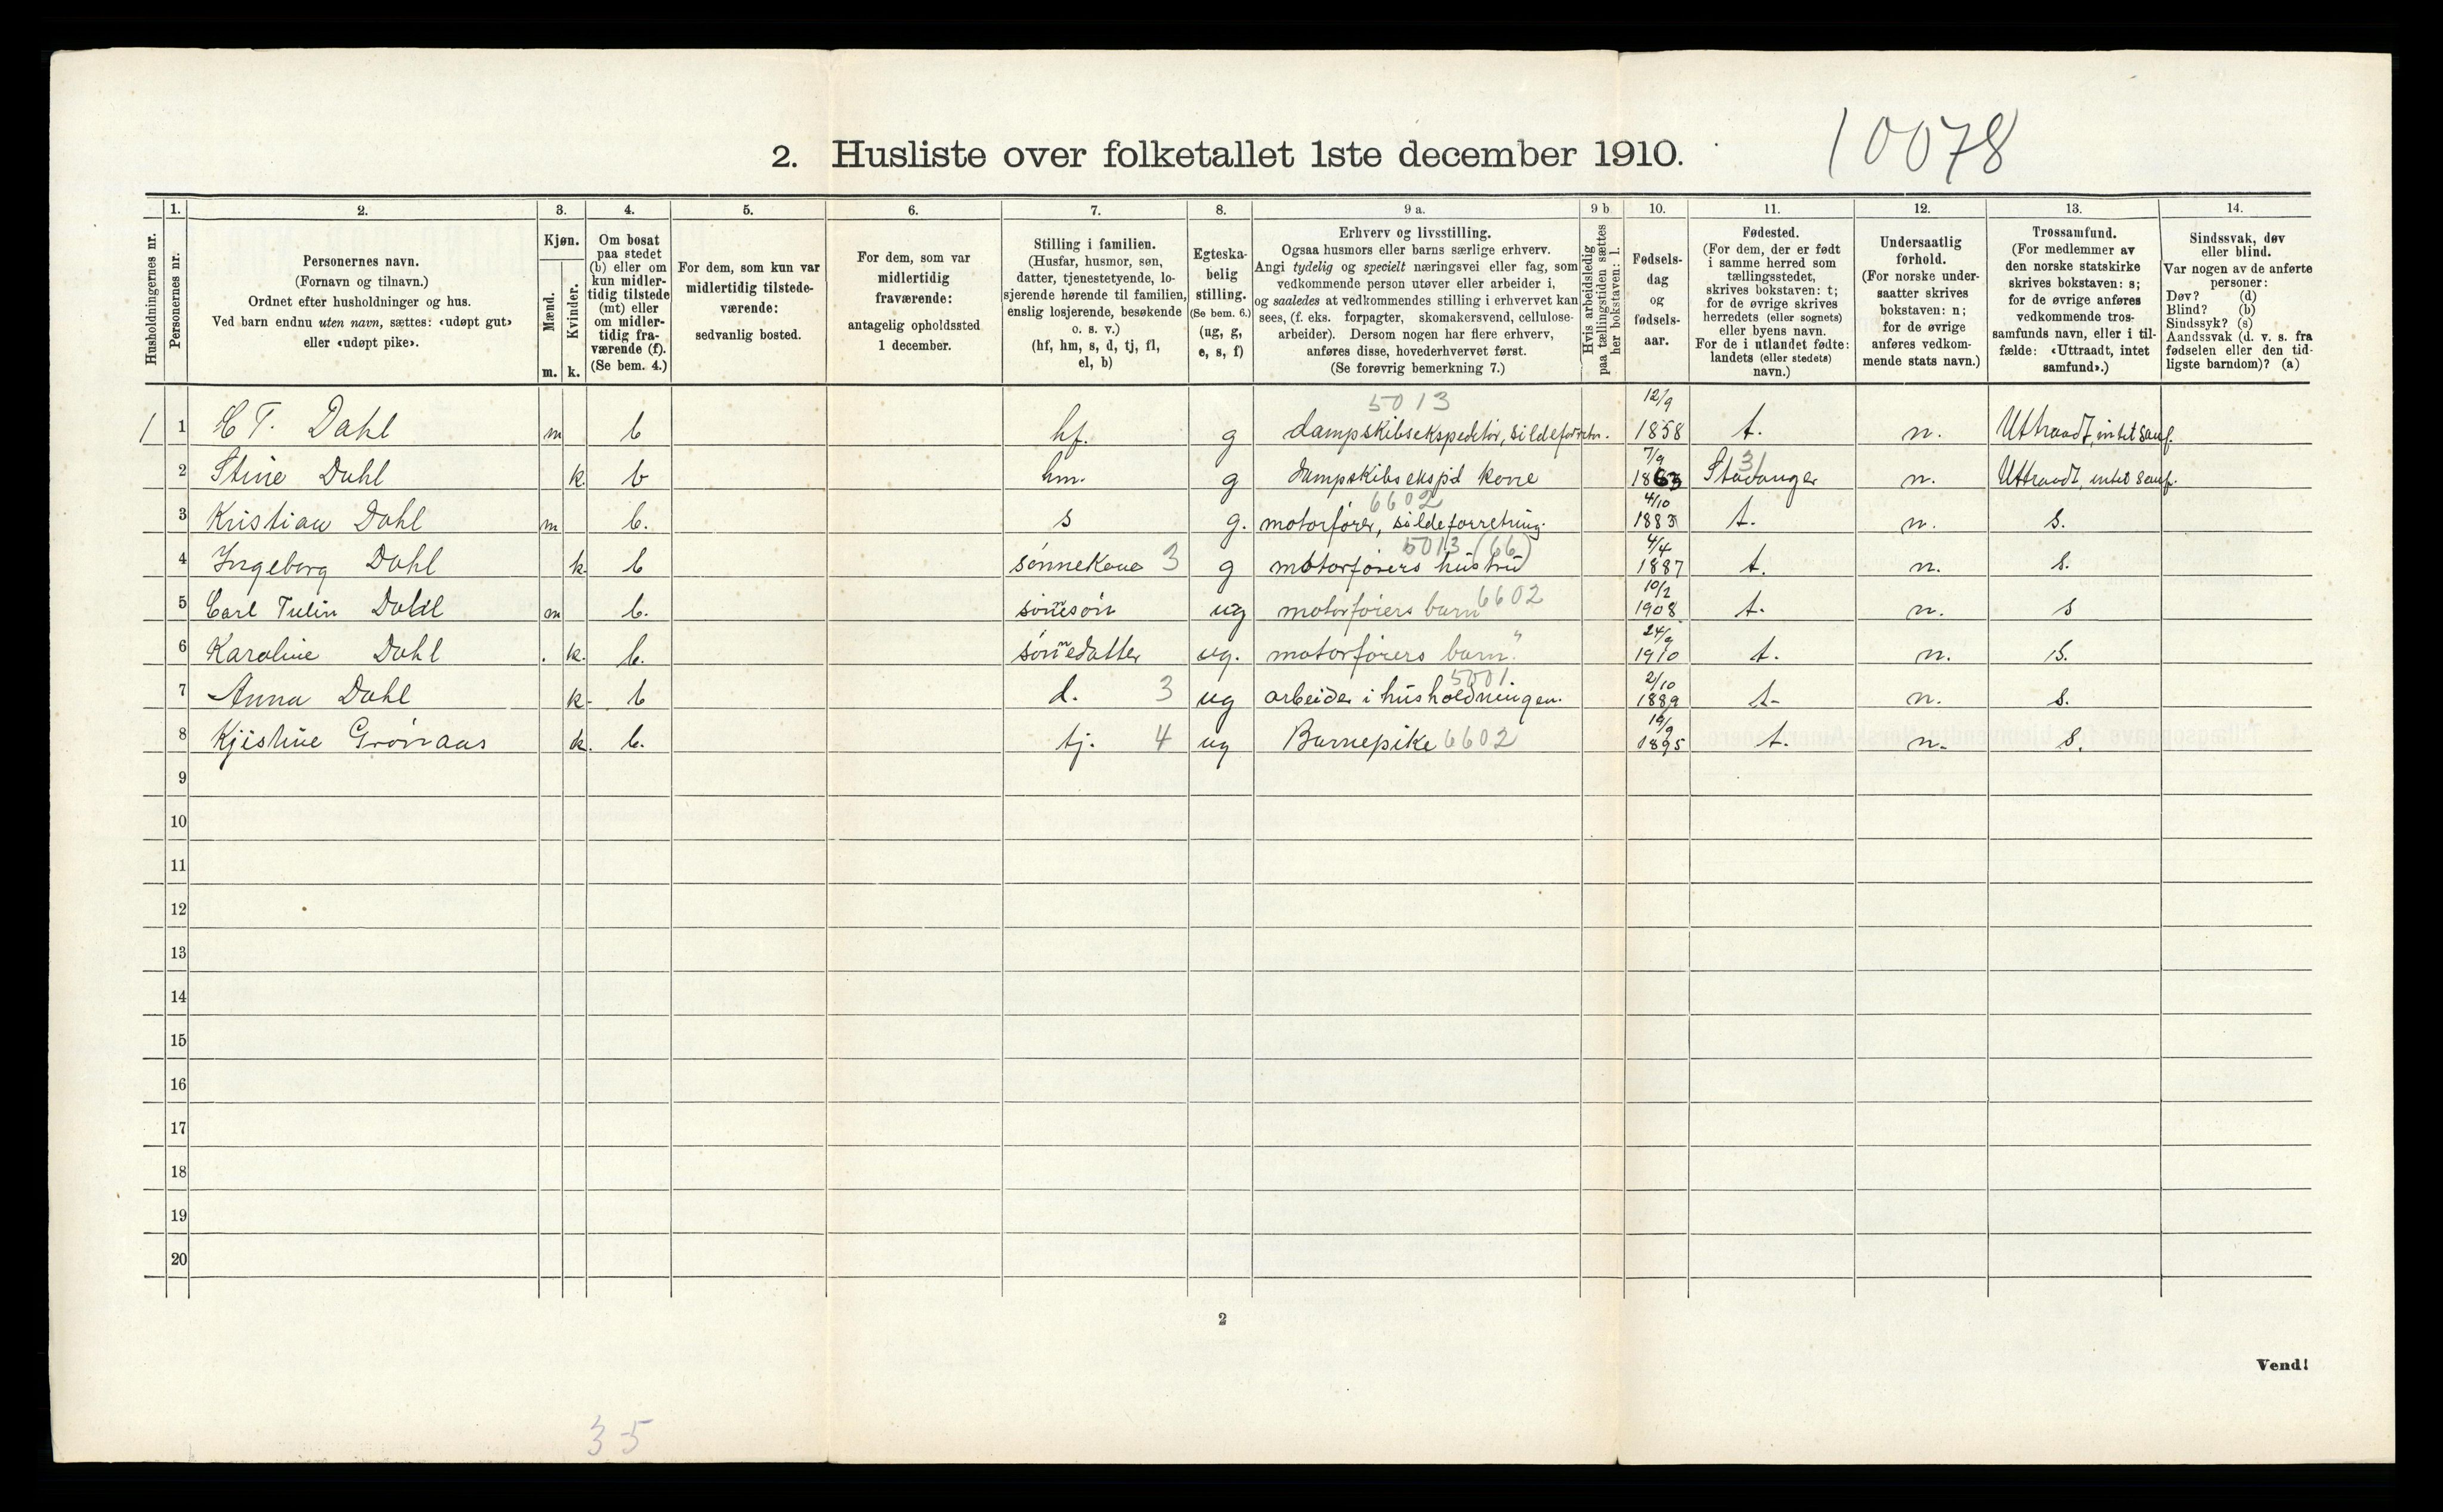 10078
2. Husliste over folketallet 1ste december 1910.
Husholdningernes nr.
1.
Personernes nr.
2.
Personernes navn.
(Fornavn og tilnavn.)
Ordnet efter husholdninger og hus.
Ved barn endnu uten navn, sættes: «udøpt gut»
eller «udøpt pike».
3.
Kjøn.
Mænd.
Kvinder.
m. k.
4.
Om bosat
paa stedet
(b) eller om
kun midler-
tidig tilstede
(mt) eller
om midler-
tidig fra-
værende (f).
(Se bem. 4.)
5.
For dem, som kun var
midlertidig tilstede-
værende:
sedvanlig bosted.
6.
For dem, som var
midlertidig
fraværende:
antagelig opholdssted
1 december.
7.
Stilling i familien.
(Husfar, husmor, søn,
datter, tjenestetyende, lo-
sjerende hørende til familien,
enslig losjerende, besøkende
o. s. v.)
(hf, hm, s, d, tj, fl,
el, b)
8.
Egteska-
belig
stilling.
(Se bem. 6.)
(ug, g,
e, s, f)
9 a.
Erhverv og livsstilling.
Ogsaa husmors eller barns særlige erhverv.
Angi tydelig og specielt næringsvei eller fag, som
vedkommende person utøver eller arbeider i,
og saaledes at vedkommendes stilling i erhvervet kan
sees, (f. eks. forpagter, skomakersvend, cellulose-
arbeider). Dersom nogen har flere erhverv,
anføres disse, hovederhvervet først.
(Se forøvrig bemerkning 7.)
9 b
Hvis arbeidsledig
paa tællingstiden sættes
her bokstaven: l.
10.
Fødsels-
dag
og
fødsels-
aar.
11.
Fødested.
(For dem, der er født
i samme herred som
tællingsstedet,
skrives bokstaven: t;
for de øvrige skrives
herredets (eller sognets)
eller byens navn.
For de i utlandet fødte:
landets (eller stedets)
navn.)
12.
Undersaatlig
forhold.
(For norske under-
saatter skrives
bokstaven: n;
for de øvrige
anføres vedkom-
mende stats navn.)
13.
Trossamfund.
(For medlemmer av
den norske statskirke
skrives bokstaven: s;
for de øvrige anføres
vedkommende tros-
samfunds navn, eller i til-
fælde: «Uttraadt, intet
samfund».)
14.
Sindssvak, døv
eller blind.
Var nogen av de anførte
personer:
Døv? (d)
Blind? (b)
Sindssyk? (s)
Aandssvak (d. v. s. fra
fødselen eller den tid-
ligste barndom)? (a)
5013 12/9
1 1 T. Dahl m b hf. g dampskibsekspeditør, sildeforretn. 1858 t. n. Uttraadt, intet samf.
7/9 31
2 Stine Dahl k b hm. g dampskibsekspd kone 1863 Stavanger n. Uttraadt, intet samf.
6602 4/10
3 Kristian Dahl m b. s g. motorfører, sildeforretning. 1883 t. n. s.
5013 (66) 4/4
4 Ingeborg Dahl k. b sønnekone 3 g motorførers hustru 1887 t. n. s.
10/2
5 Carl Tulin Dahl m b. sønnesøn ug motorførers barn 6602 1908 t. n. s
24/9
6 Karoline Dahl k. b. sønnedatter ug. motorførers barn. " 1910 t. n. s.
5001. 2/10
7 Anna Dahl k. b d. 3 ug arbeider i husholdningen. 1889 t. n. s.
19/9
8 Kjistine Grønaas k. b. tj. 4 ug Barnepike 6602 1895 t. n. s.
9
10
11
12
13
14
15
16
17
18
19
20
2
Vend!
35